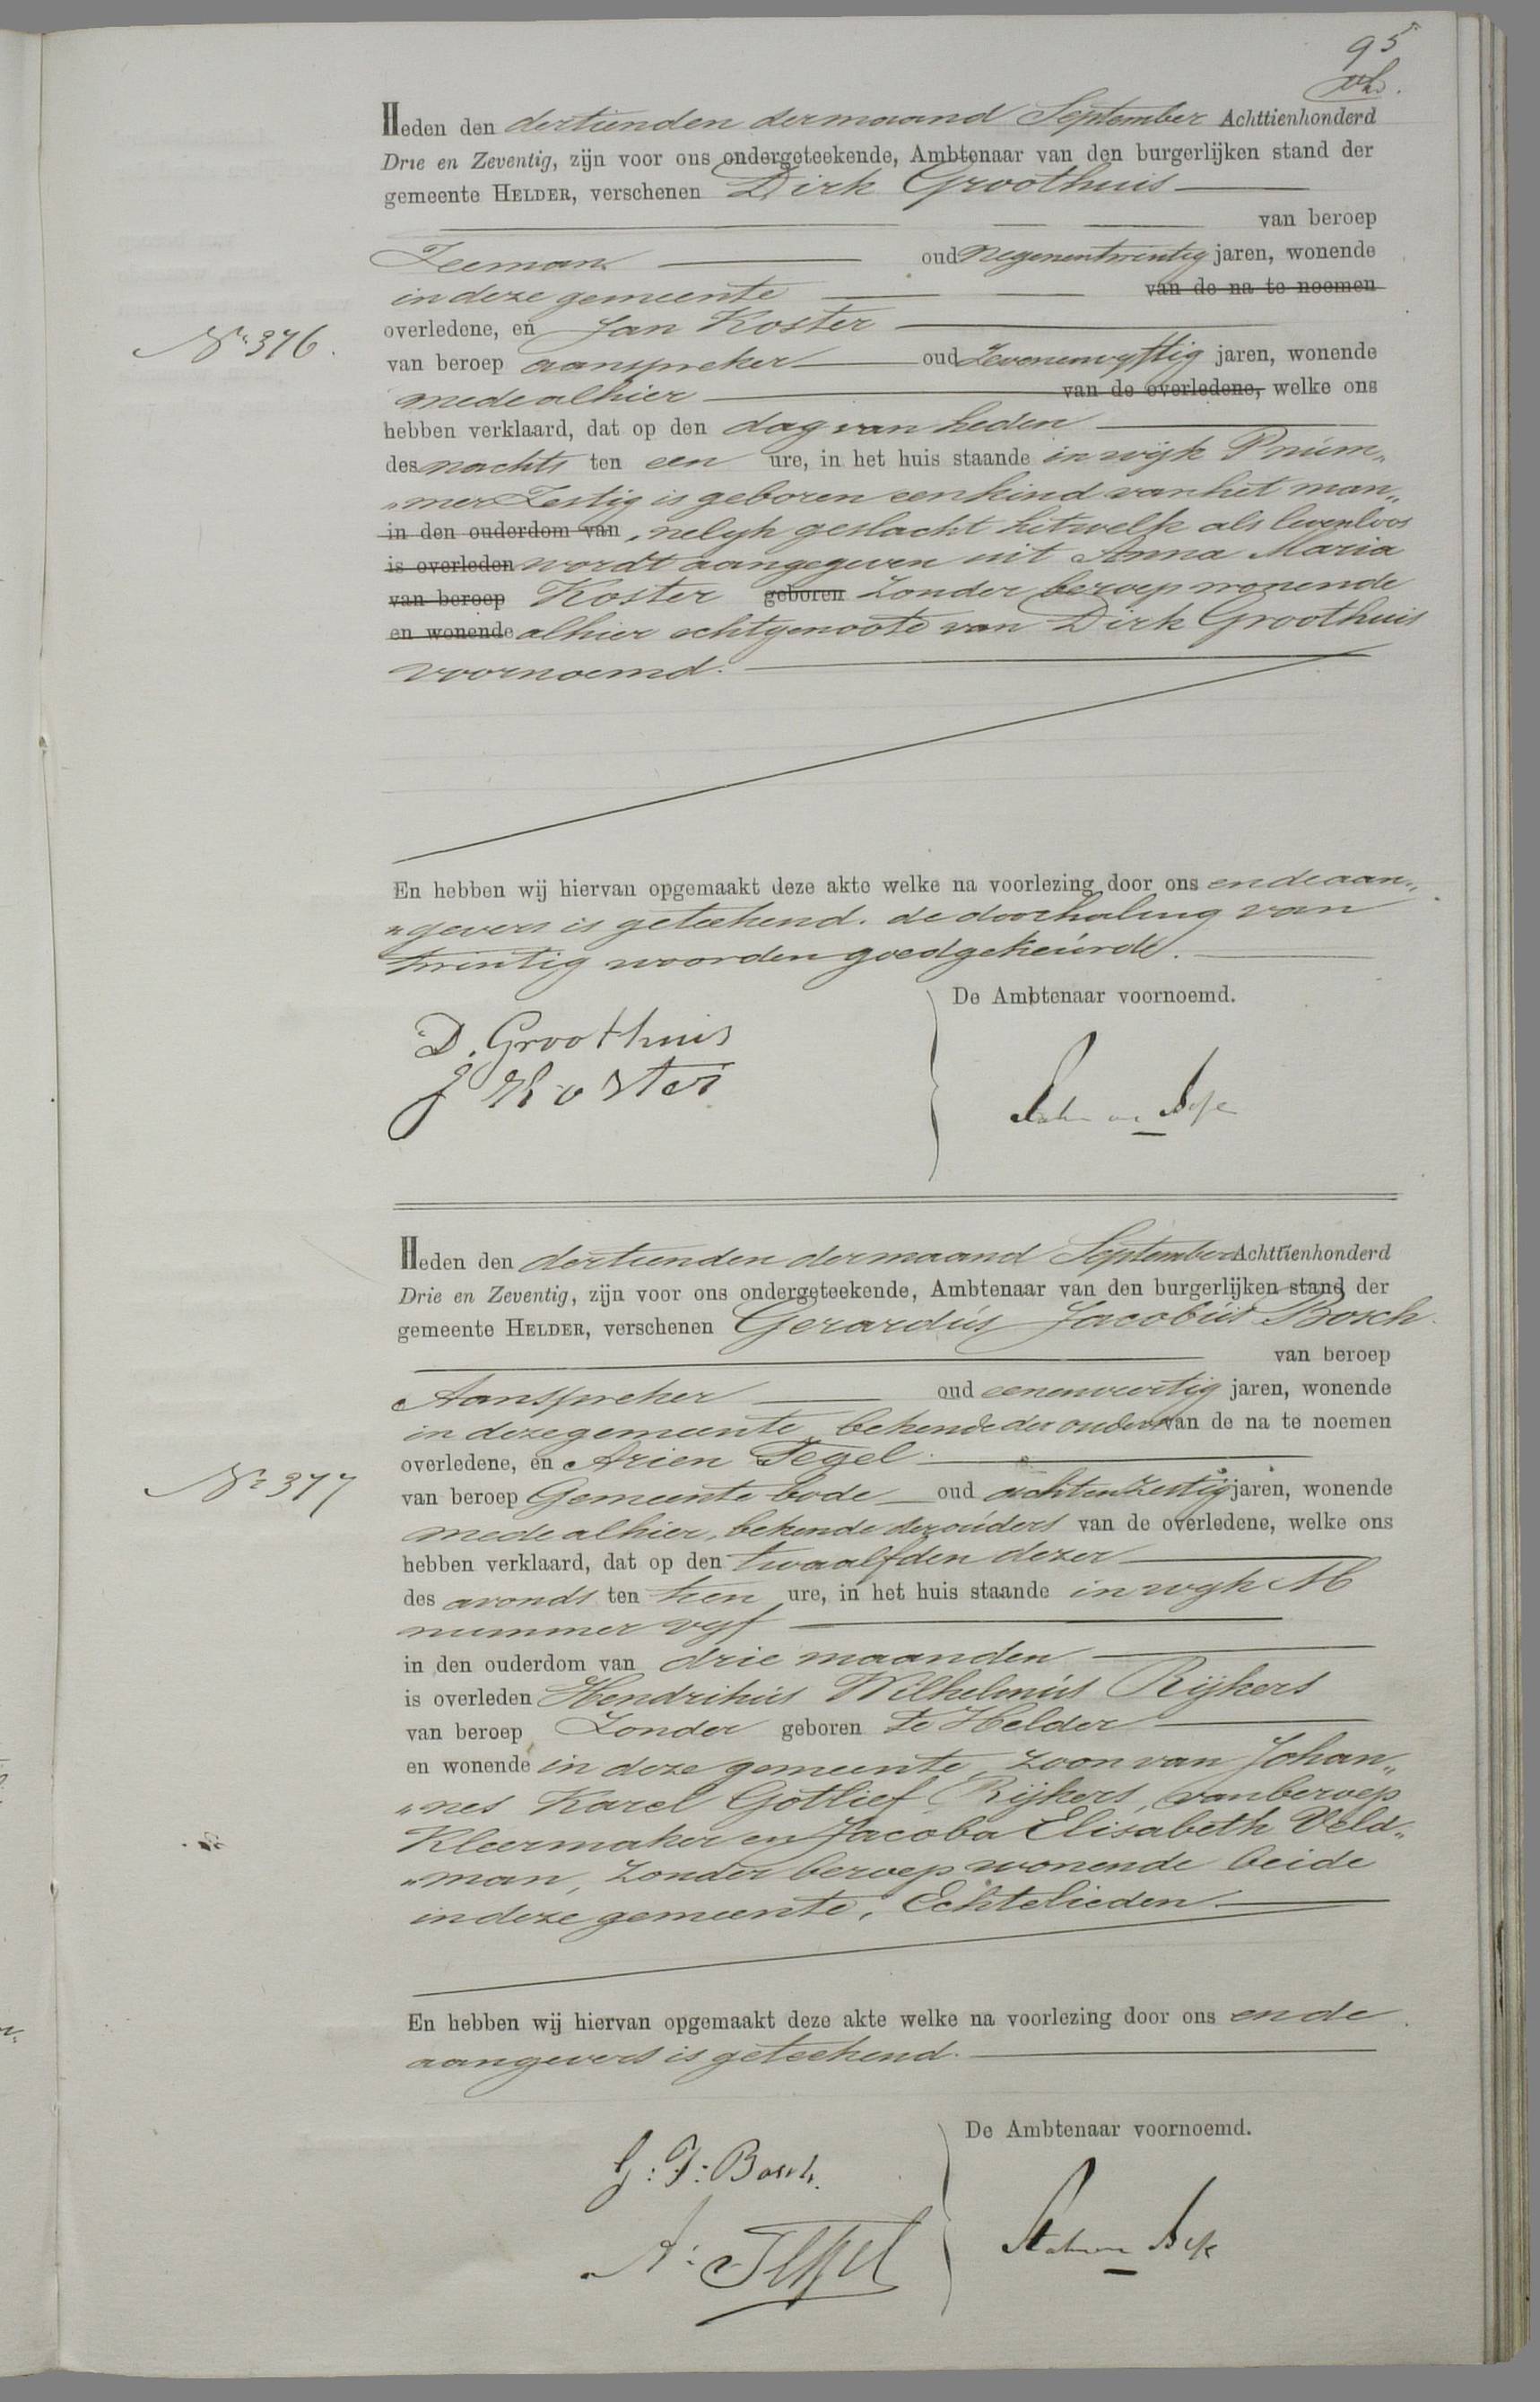 95
Heden den dertienden der maand September Achttienhonderd
Drie en Zeventig, zijn voor ons ondergeteekende, Ambtenaar van den burgerlijken stand der
gemeente HELDER, verschenen Dirk Groothuis
van beroep
Zeeman oud negenentwintig jaren, wonende
in deze gemeente van de na te noemen
overledene, en Jan Koster
No 376.
van beroep aanspreker oud Zevenenvyftig jaren, wonende
mede alhier van de overledene, welke ons
hebben verklaard, dat op den dag van heden
des nachts ten een ure, in het huis staande in wijk P num„
„mer Zestig is geboren een kind van het man„
in den ouderdom van „nelyk geslacht hetwelk als levenloos
is overleden wordt aangegeven uit Anna Maria
van beroep Koster geboren Zonder beroep wonende
en wonende alhier echtgenoote van Dirk Groothuis
voornoemd.
En hebben wij hiervan opgemaakt deze akte welke na voorlezing door ons en de aan„
„gevers is geteekend. de doorhaling van
twintig woorden goedgekeurde.
De Ambtenaar voornoemd.
D. Groothuis
J Koster
Heden den dertienden der maand September Achttienhonderd
Drie en Zeventig, zijn voor ons ondergeteekende, Ambtenaar van den burgerlijken stand der
gemeente HELDER, verschenen Gerardus Jacobus Bosch
van beroep
Aanspreker oud eenenveertig jaren, wonende
in deze gemeente, bekende der ouders van de na te noemen
overledene, en Arien Tegel
No 377
van beroep Gemeente bode oud achtenzestig jaren, wonende
mede alhier, bekende der ouders van de overledene, welke ons
hebben verklaard, dat op den twaalfden dezer
des avonds ten tien ure, in het huis staande in wyk M
nummer vyf
in den ouderdom van drie maanden
is overleden Hendrikus Wilhelmus Rijkers
van beroep Zonder geboren te Helder
en wonende in deze gemeente, zoon van Johan„
„nes Karel Gotlief Rijkers, van beroep
Kleermaker en Jacoba Elisabeth Veld„
„man, Zonder beroep wonende beide
in deze gemeente, Echtelieden
En hebben wij hiervan opgemaakt deze akte welke na voorlezing door ons en de
aangevers is geteekend.
De Ambtenaar voornoemd.
G: J: Bosch.
A: Tegel